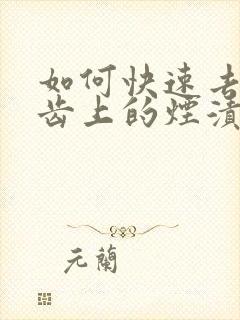 如何快速去
齿上的煙漬
元蘭